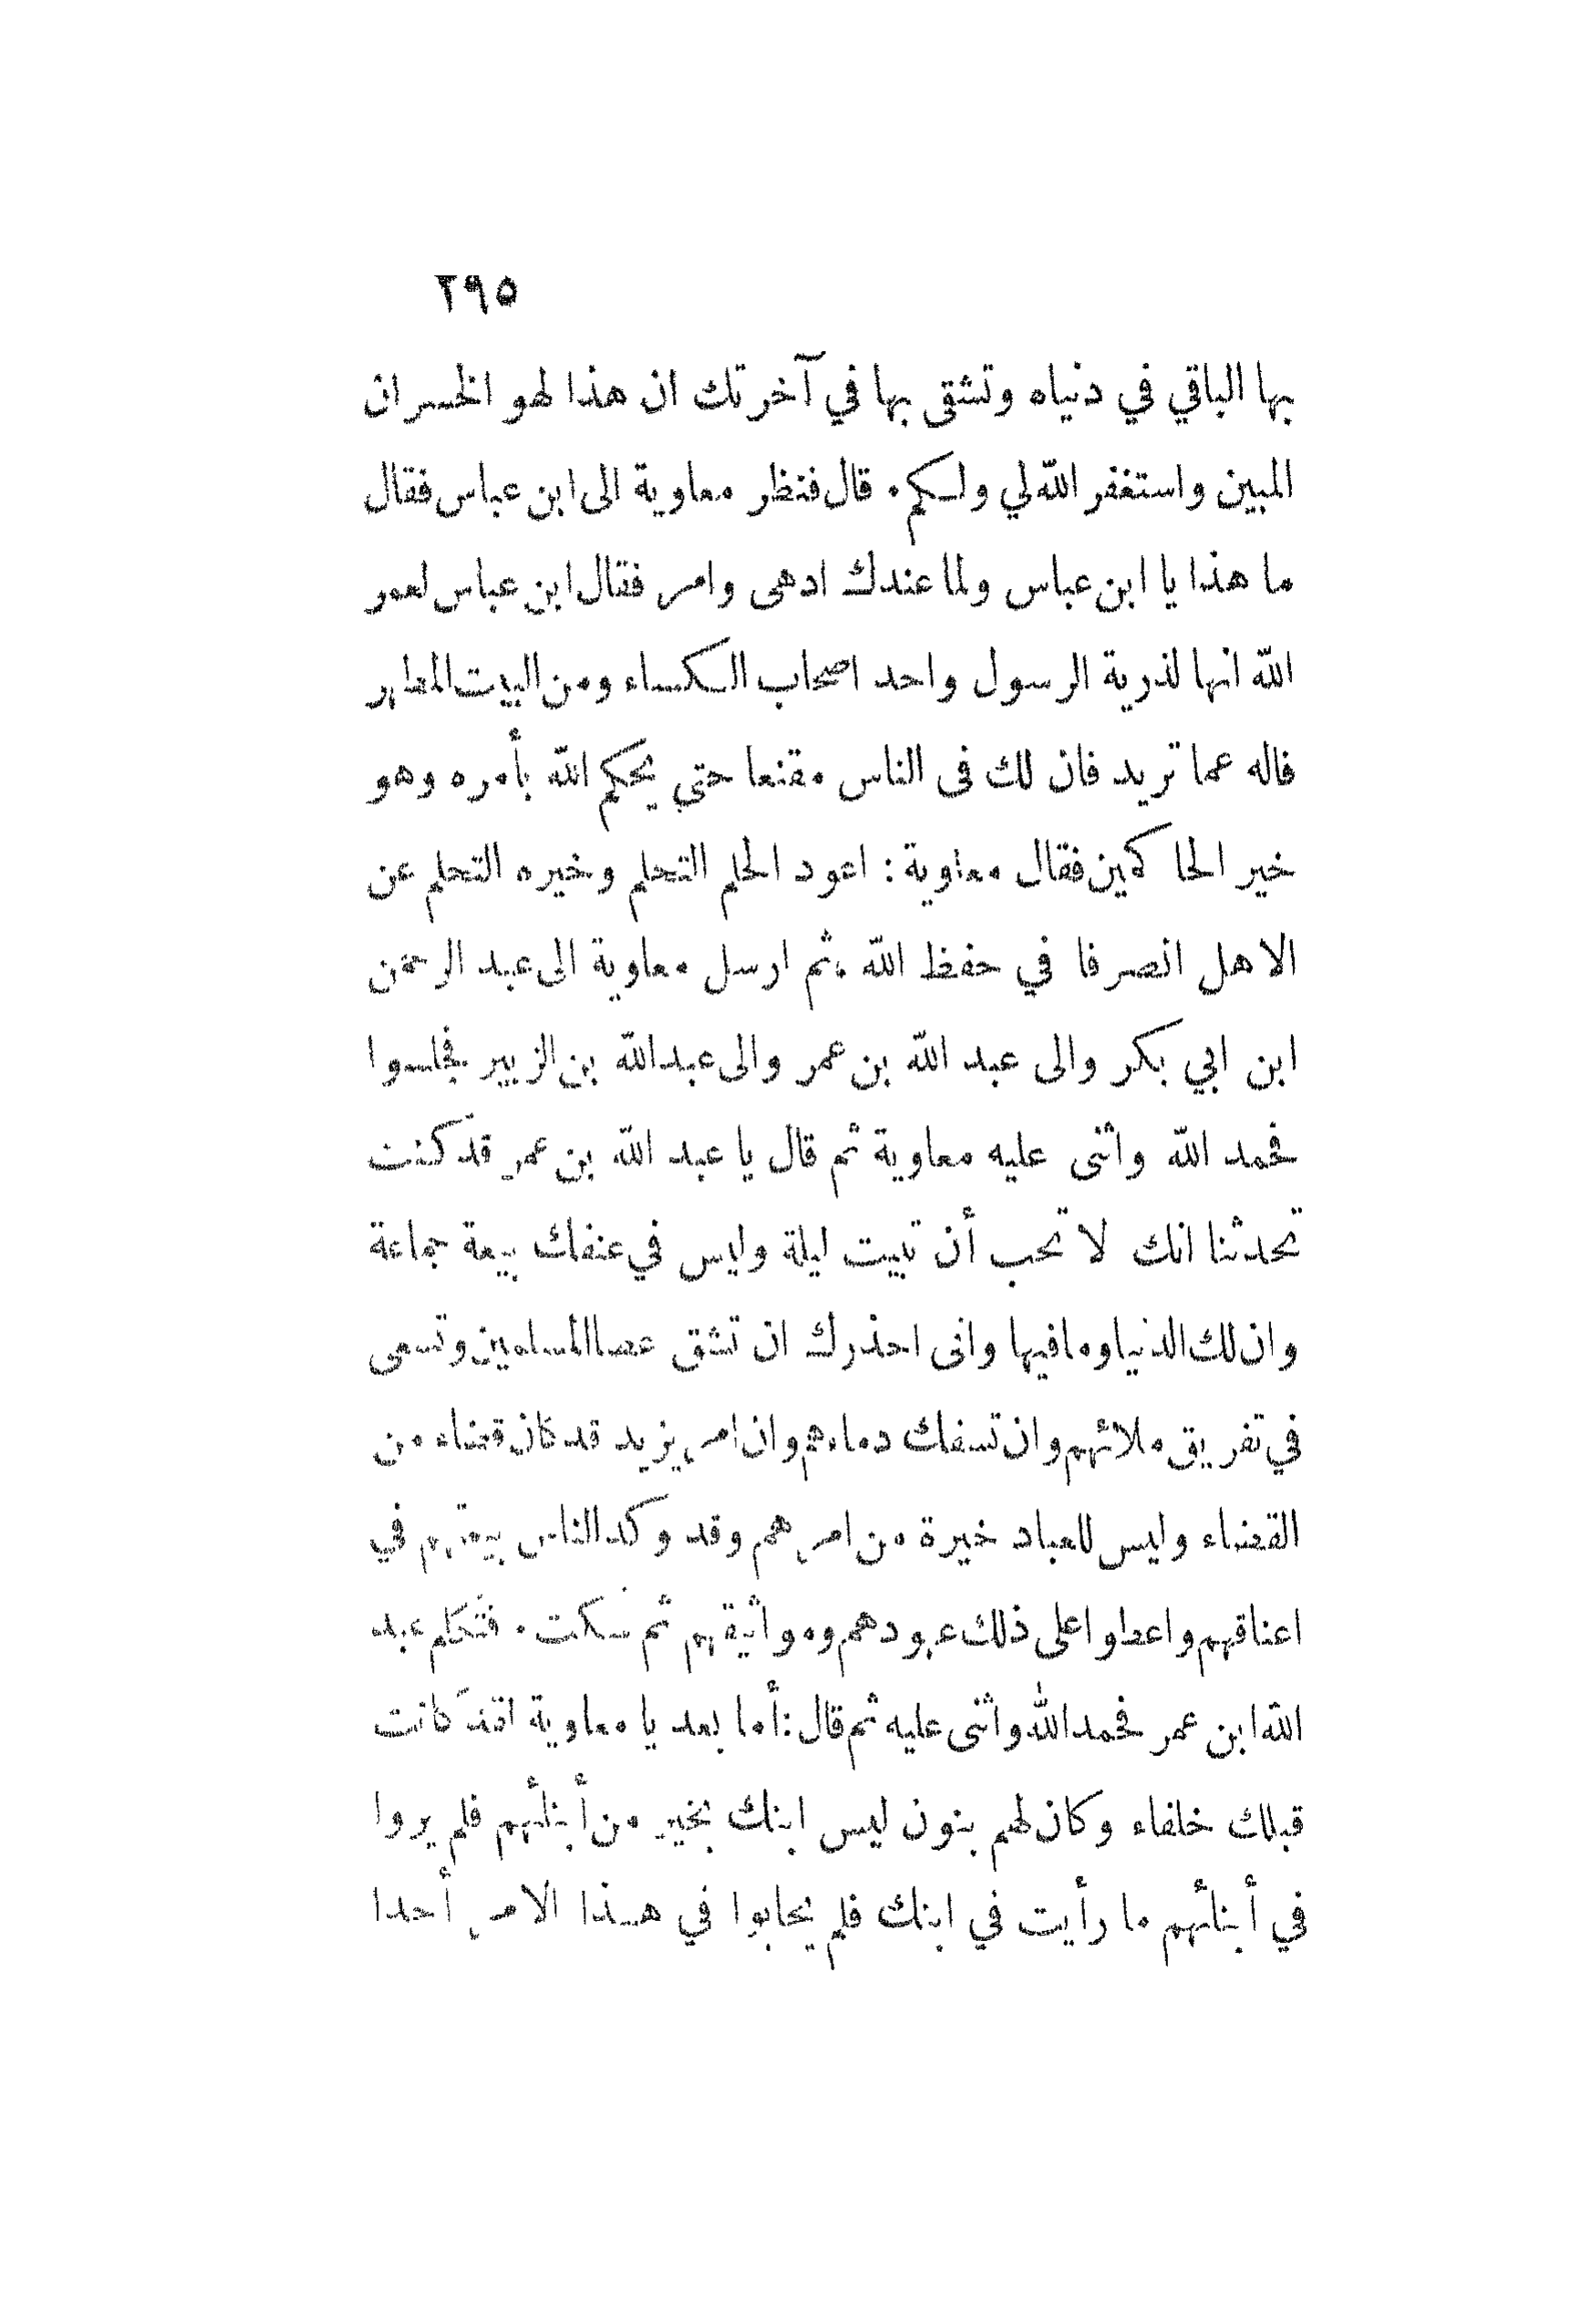 ٢٩٥
بها الباقي في دنياه وتشقى بها في آخرتك ان هذا لهو الخسران
المبين واستغفر الله لي ولكم. قال فنظر معاوية الى ابن عباس فقال
ما هذا يا ابن عباس ولما عندك ادهى وامر فقال ابن عباس لعمر
الله انها لذرية الرسول واحد اصحاب الكساء ومن البيت المطهر
فاله عما تريد فان لك فى الناس مقنعا حتي يحكم الله بأمره وهو
خير الحاكمين فقال معاوية : اعود الحلم التحلم وخيره التحلم عن
الاهل انصرفا في حفظ الله ، ثم ارسل معاوية الى عبد الرحمن
ابن ابي بكر والى عبد الله بن عمر والى عبد الله بن الزبير فجلسوا
فحمد الله واثنى عليه معاوية ثم قال يا عبد الله بن عمر قد كنت
تحدثنا انك لا تحب أن تبيت ليلة وليس في عنقك بيعة جماعة
وان لك الدنيا وما فيها وانى احذرك ان تشق عصا المسلمين وتسعى
في تفريق ملائهم وان تسفك دماءهم وان امر يزيد قد كان قضاء من
القضاء وليس للعباد خيرة من امرهم وقد وكد الناس بيعتهم في
اعناقهم واعطوا على ذلك عهودهم ومواثيقهم ثم سكت . فتكلم عبد
الله ابن عمر فحمد الله واثنى عليه ثم قال : أما بعد يا معاوية لقد كانت
قبلك خلفاء وكان لهم بنون ليس ابنك بخير من أبنائهم فلم يروا
في أبنائهم ما رأيت في ابنك فلم يحابوا في هذا الامر أحدا